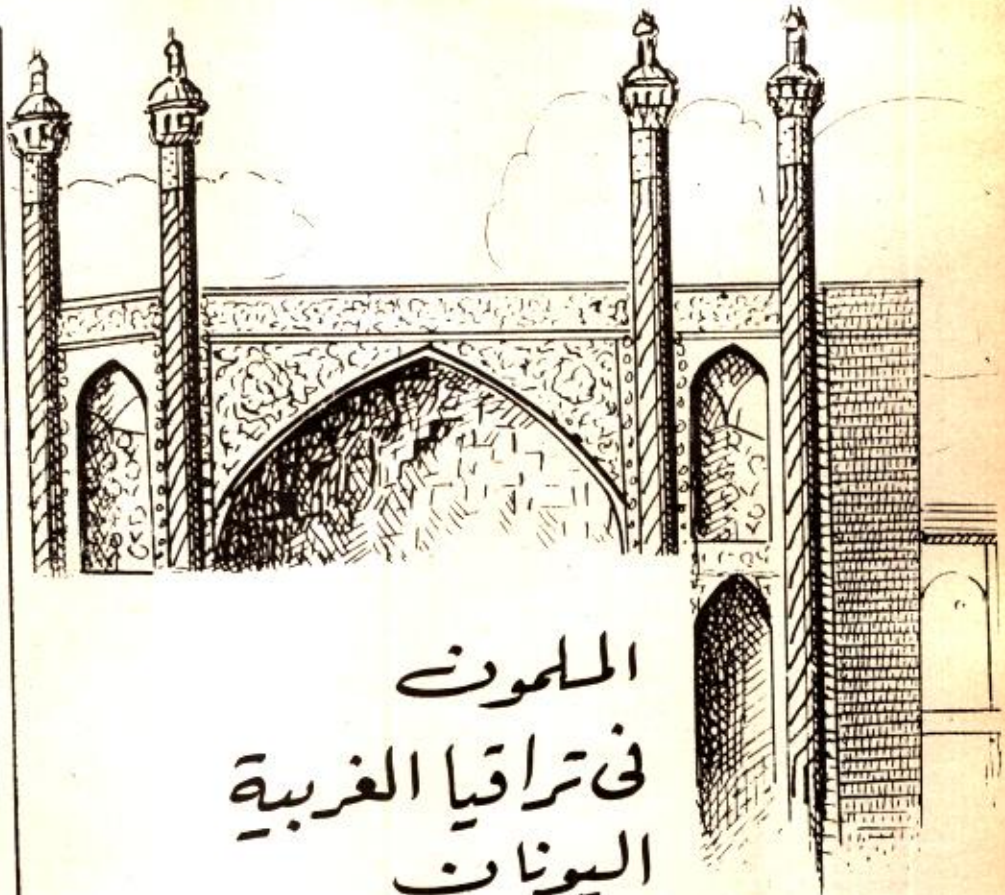 المسلمون
في تراقيا الغربية
اليونان